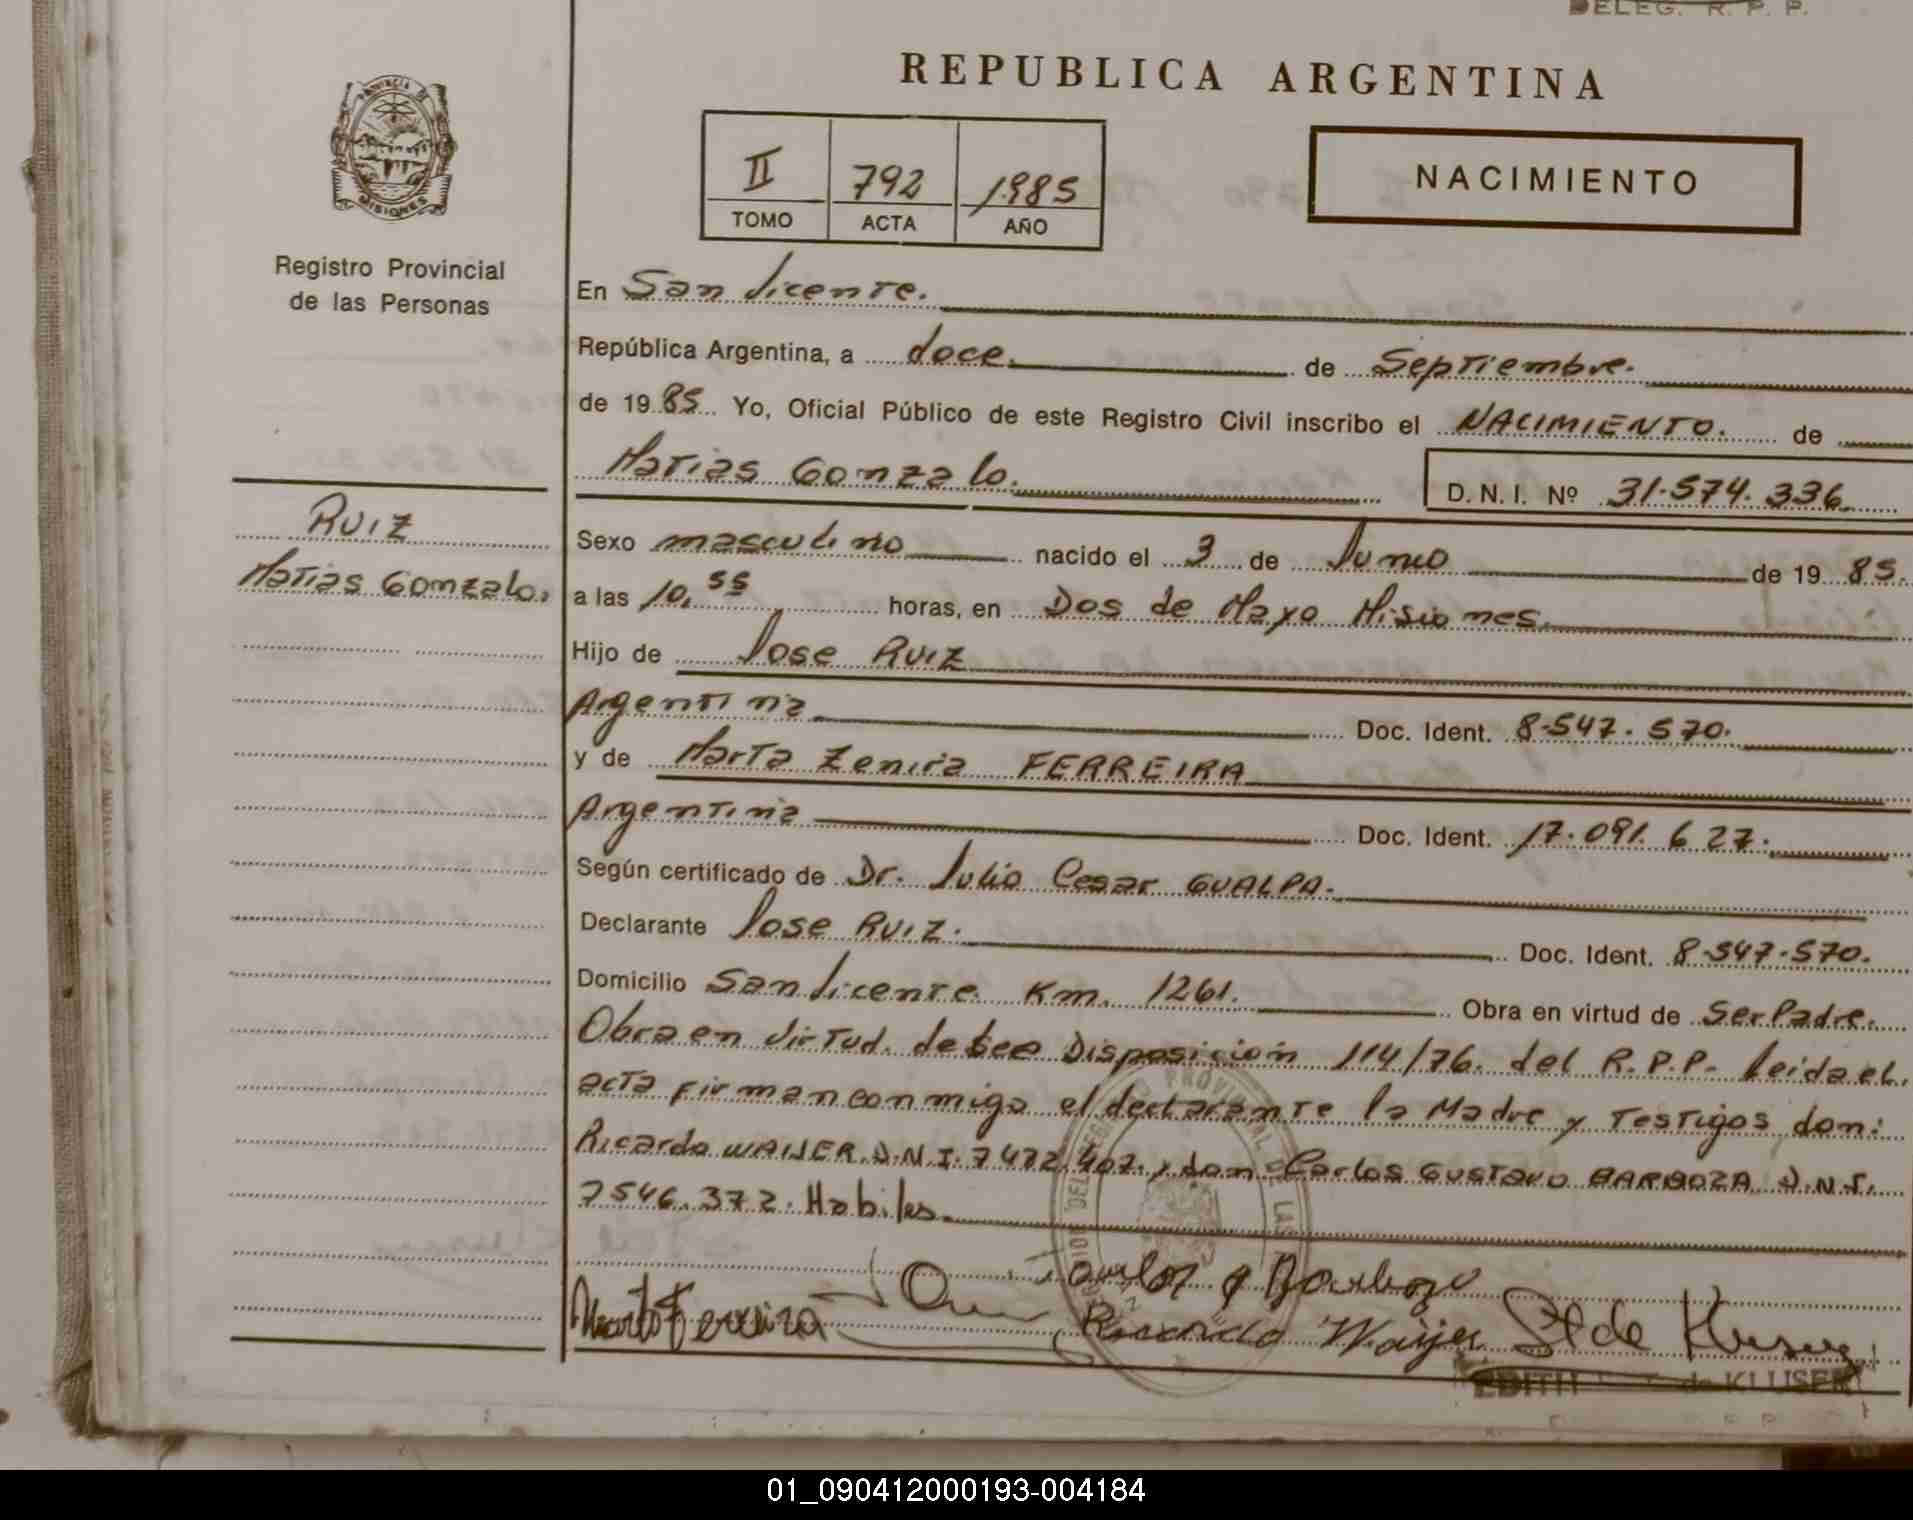 DELEG. R. P. P.
REPUBLICA ARGENTINA
PROVINCIA DE
MISIONES
Registro Provincial
de las Personas
II 792 1985
TOMO ACTA AÑO
NACIMIENTO
En San Vicente.
República Argentina, a doce. de Septiembre.
de 1985 Yo, Oficial Público de este Registro Civil inscribo el NACIMIENTO. de
Matias Gonzalo. D. N. I. Nº 31.574.336.
RUIZ
Matias Gonzalo.
Sexo masculino nacido el 3 de Junio de 19 85.
a las 10,55 horas, en Dos de Mayo Misiones.
Hijo de Jose RUIZ
Argentina Doc. Ident. 8.547.570.
y de Marta Zenira FERREIRA
Argentina Doc. Ident. 17.091.627.
Según certificado de Dr. Julio Cesar GUALPA.
Declarante Jose RUIZ. Doc. Ident. 8.547.570.
Domicilio San Vicente Km. 1261. Obra en virtud de Ser Padre.
Obra en virtud. de Disposición 114/76. del R.P.P. leida el
acta firman conmigo el declarante la Madre y Testigos don:
Ricardo WAIJER D.N.I. 7472.407. y don Carlos Gustavo BARBOZA D.N.I.
7546.372. Habiles.
Carlos G Barboza
Marta Ferreira Ricardo Waijer St de Kluser
EDITH de KLUSER
01_090412000193-004184